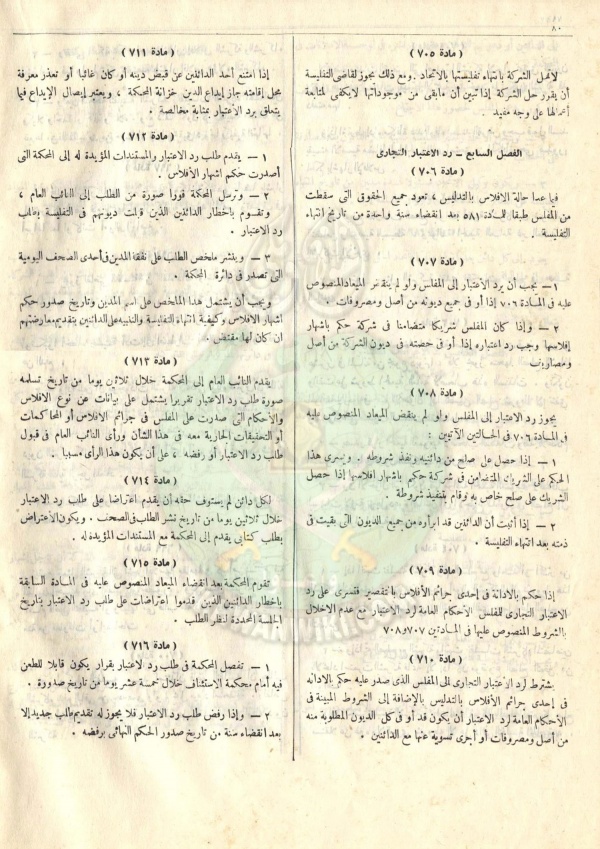 ٨٠
(مادة ٧٠٥)
لا تحل الشركة بانتهاء تفليستها بالاتحاد . ومع ذلك يجوز لقاضي التفليسة
أن يقرر حل الشركة إذا تبين أن مابقي من موجوداتها لايكفي لمتابعة
أعمالها على وجه مفيد .
الفصل السابع – رد الاعتبار التجارى
(مادة ٧٠٦)
فيما عدا حالة الافلاس بالتدليس ، تعود جميع الحقوق التى سقطت
من المفلس طبقا للمادة ٥٨١ بعد انقضاء سنة واحدة من تاريخ انتهاء
التفليسة .
(مادة ٧٠٧)
١ – يجب أن يرد الاعتبار إلى المفلس ولو لم ينقض الميعاد المنصوص
عليه فى المادة ٧٠٦ إذا أوفى جميع ديونه من أصل ومصروفات .
٢ – وإذا كان المفلس شريكا متضامنا فى شركة حكم باشهار
إفلاسها وجب رد اعتباره إذا أوفى حصته فى ديون الشركة من أصل
ومصاريف
(مادة ٧٠٨)
يجوز رد الاعتبار إلى المفلس ولو لم ينقض الميعاد المنصوص عليه
فى المادة ٧٠٦ فى الحالتين الآتيتين :
١ – إذا حصل على صلح من دائنيه ونفذ شروطه . ويسرى هذا
الحكم على الشريك المتضامن فى شركة حكم باشهار افلاسها إذا حصل
الشريك على صلح خاص به وقام بتنفيذ شروطة .
٢ – إذا أثبت أن الدائنين قد ابرأوه من جميع الديون التى بقيت فى
ذمته بعد انتهاء التفليسة .
(مادة ٧٠٩)
إذا حكم بالادانة فى إحدى جرائم الأفلاس بالتقصير فتسرى على رد
الاعتبار التجارى للمفلس الأحكام العامة لرد الاعتبار مع عدم الاخلال
بالشروط المنصوص عليها فى المادتين ٧٠٧ و ٧٠٨
(مادة ٧١٠)
يشترط لرد الاعتبار التجارى إلى المفلس الذى صدر عليه حكم بالادانه
فى إحدى جرائم الأفلاس بالتدليس بالإضافة إلى الشروط المبينة فى
الأحكام العامة لرد الاعتبار أن يكون قد أوفى كل الديون المطلوبة منه
من أصل ومصروفات أو أجرى تسوية عنها مع الدائنين .
(مادة ٧١١)
إذا امتنع أحد الدائنين عن قبض دينه أو كان غائبا أو تعذر معرفة
محل إقامته جاز إيداع الدين خزانة المحكمة ، ويعتبر إيصال الإيداع فيما
يتعلق برد الاعتبار بمثابة مخالصة .
(مادة ٧١٢)
١ – يقدم طلب رد الاعتبار والمستندات المؤيدة له إلى المحكمة التى
أصدرت حكم اشهار الأفلاس .
٢ – وترسل المحكمة فورا صورة من الطلب إلى النائب العام ،
وتقوم باخطار الدائنين الذين قبلت ديونهم فى التفليسة بطلب
رد الاعتبار .
٣ – وينشر ملخص الطلب على نفقة المدين فى أحدى الصحف اليومية
التى تصدر فى دائرة المحكمة .
ويجب أن يشتمل هذا الملخص على اسم المدين وتاريخ صدور حكم
اشهار الافلاس وكيفية انتهاء التفليسة والتنبيه على الدائنين بتقديم معارضتهم
ان كان لها مقتض .
(مادة ٧١٣)
يقدم النائب العام إلى المحكمة خلال ثلاثين يوما من تاريخ تسلمه
صورة طلب رد الاعتبار تقريرا يشتمل على بيانات عن نوع الافلاس
والأحكام التى صدرت على المفلس فى جرائم الافلاس أو المحاكمات
أو التحقيقات الجارية معه فى هذا الشأن ورأى النائب العام فى قبول
طلب رد الاعتبار أو رفضه ، على أن يكون هذا الرأى مسببا .
(مادة ٧١٤)
لكل دائن لم يستوف حقه أن يقدم اعتراضا على طلب رد الاعتبار
خلال ثلاثين يوما من تاريخ نشر الطلب فى الصحف . ويكون الأعتراض
بطلب كتابى يقدم إلى المحكمة مع المستندات المؤيدة له .
(مادة ٧١٥)
تقوم المحكمة بعد انقضاء الميعاد المنصوص عليه فى المادة السابقة
باخطار الدائنين الذين قدموا اعتراضات على طلب رد الاعتبار بتاريخ
الجلسة المحددة لنظر الطلب .
(مادة ٧١٦)
١ – تفصل المحكمة فى طلب رد الاعتبار بقرار يكون قابلا للطعن
فيه أمام محكمة الاستئناف خلال خمسة عشر يوما من تاريخ صدورة .
٢ – وإذا رفض طلب رد الاعتبار فلا يجوز له تقديم طلب جديد إلا
بعد انقضاء سنة من تاريخ صدور الحكم النهائى برفضه .